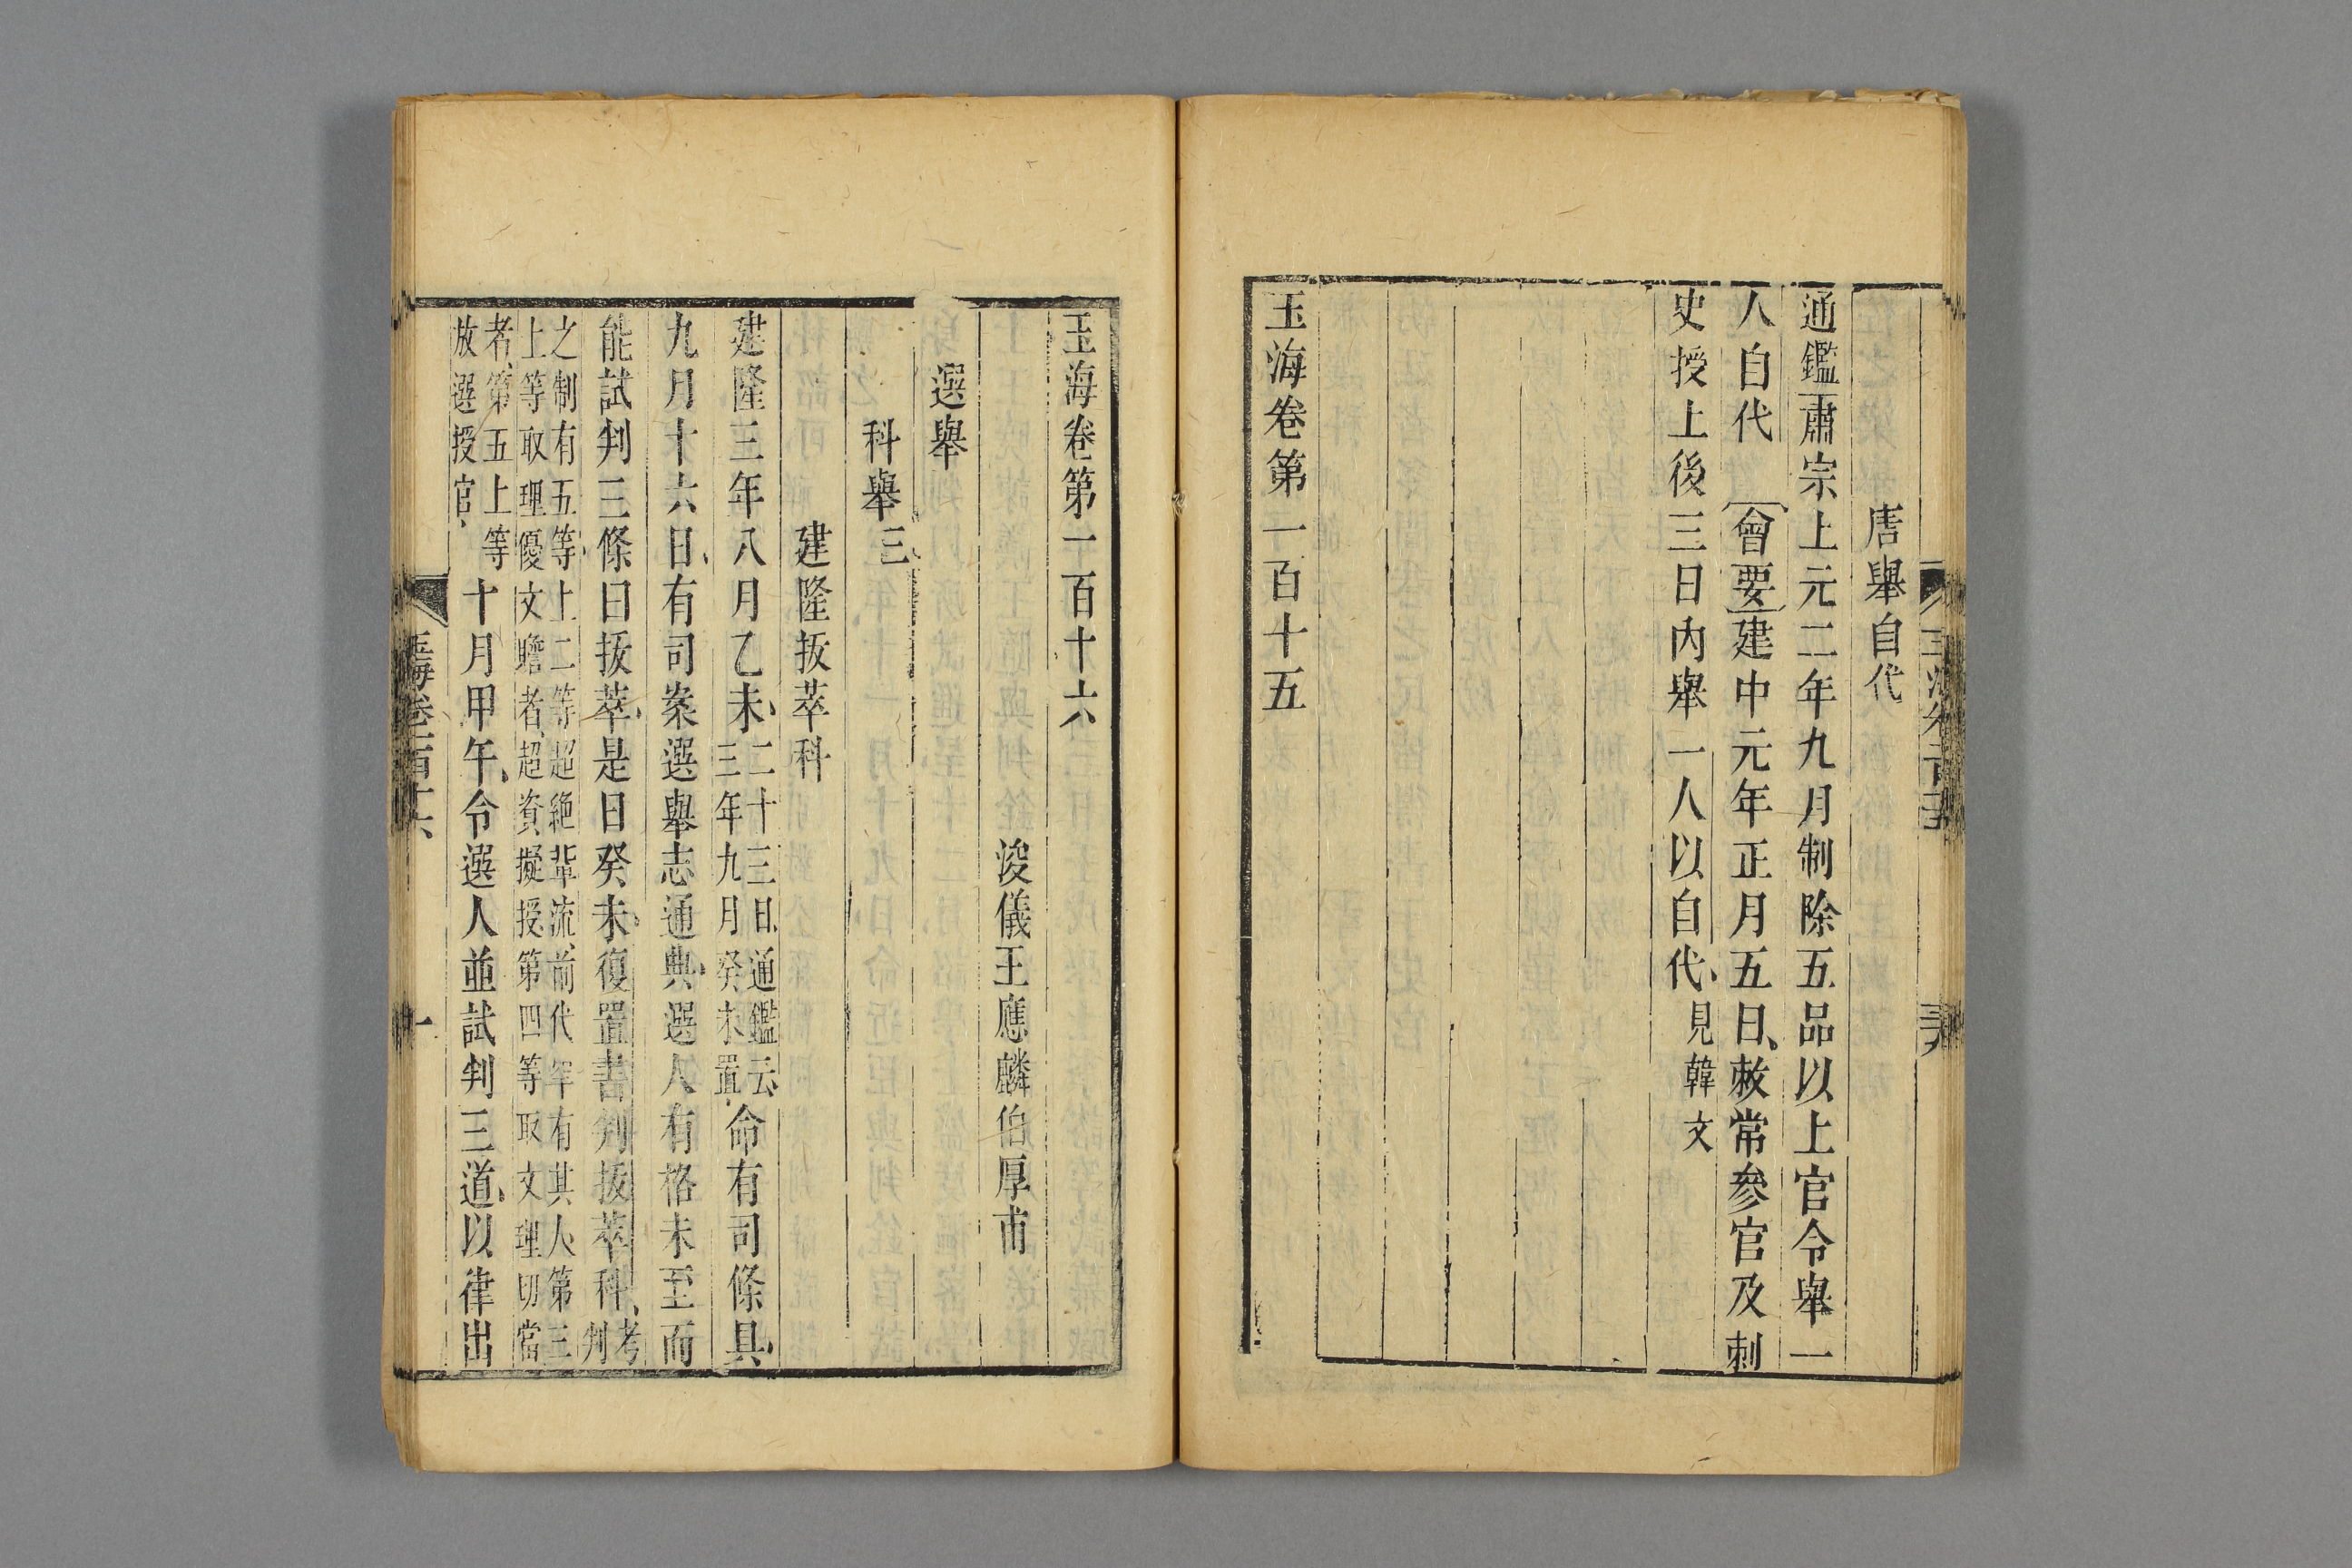 唐舉自代
通鑑肅宗上元二年九月制除五品以上官令舉一
人自代 會要建中元年正月五日敕常參官及刺
史授上後三日內舉一人以自代見韓文
玉海卷第一百十五
玉海卷第一百十六
浚儀王應麟伯厚甫
選舉
科舉三
建隆拔萃科
建隆三年八月乙未二十三日通鑑云
三年九月癸未置命有司條具
九月十六日有司案選舉志通典選人有格未至而
能試判三條曰拔萃是日癸未復置書判拔萃科考
判
之制有五等上二等超絕輩流前代罕有其人第三
上等取理優文贍者超資擬授第四等取文理切當
者第五上等
放選授官十月甲午令選人並試判三道以律出
玉海卷一百十六
一